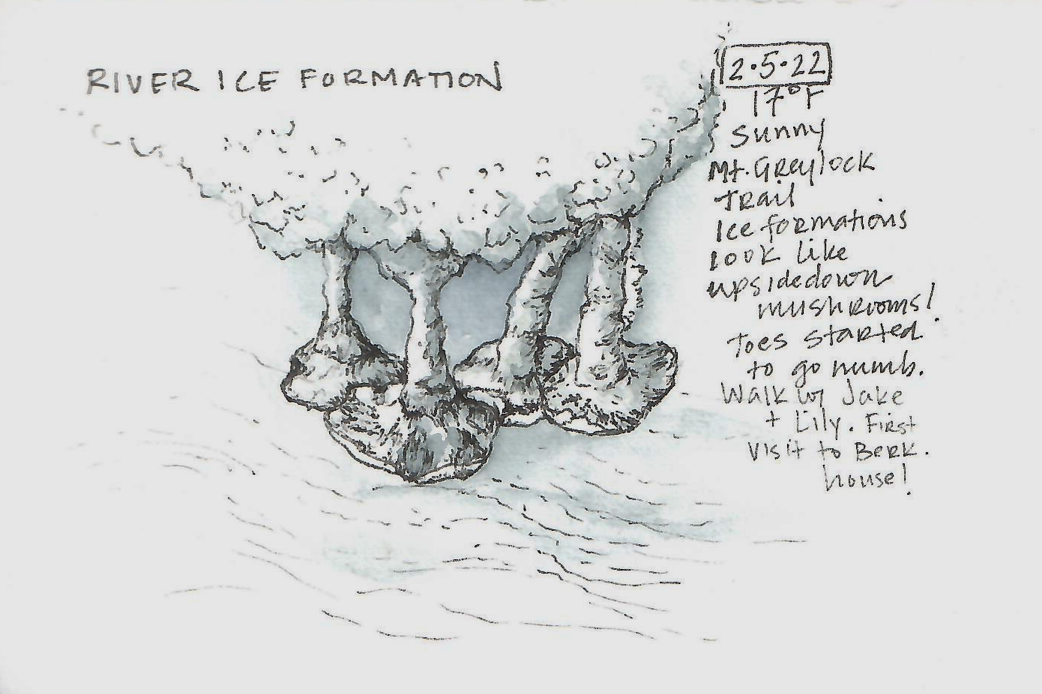 RIVER ICE FORMATION
2.5.22
17°F
Sunny
Mt. Greylock
Trail
Ice formations
look like
upsidedown
mushrooms!
Toes started
to go numb.
Walk w/ Jake
+ Lily. First
visit to Berk.
house!